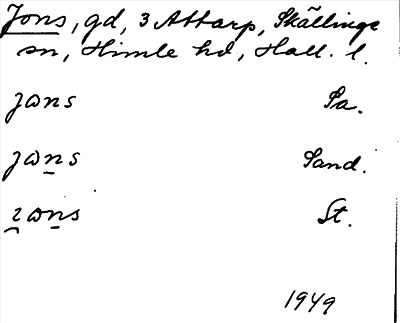 Jons, gd, 3 Attarp, Skällinge
sn, Himle hd, Hall. l.
jɷns Pa.
jɷns Sand.
ɩɷns St.
1949